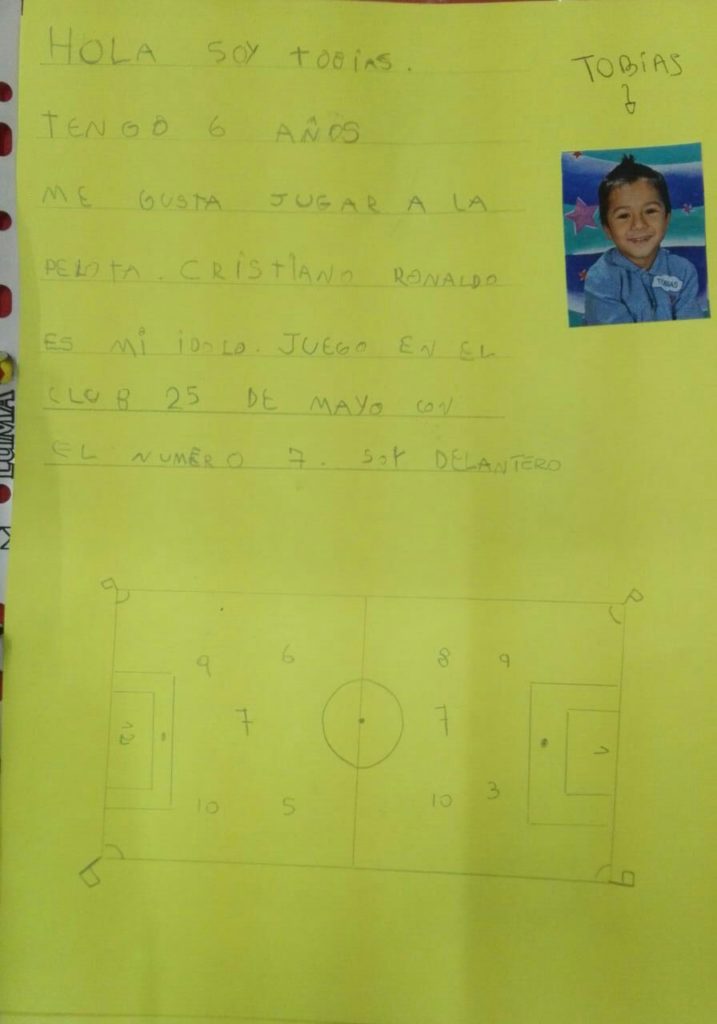 HOLA SOY TOBÍAS.
TENGO 6 AÑOS
ME GUSTA JUGAR A LA
PELOTA. CRISTIANO RONALDO
ES MI IDOLO. JUEGO EN EL
CLUB 25 DE MAYO CON
EL NUMERO 7. SOY DELANTERO
TOBÍAS
TOBIAS
LUMA
9 6 8 9
7 7
10 5 10 3